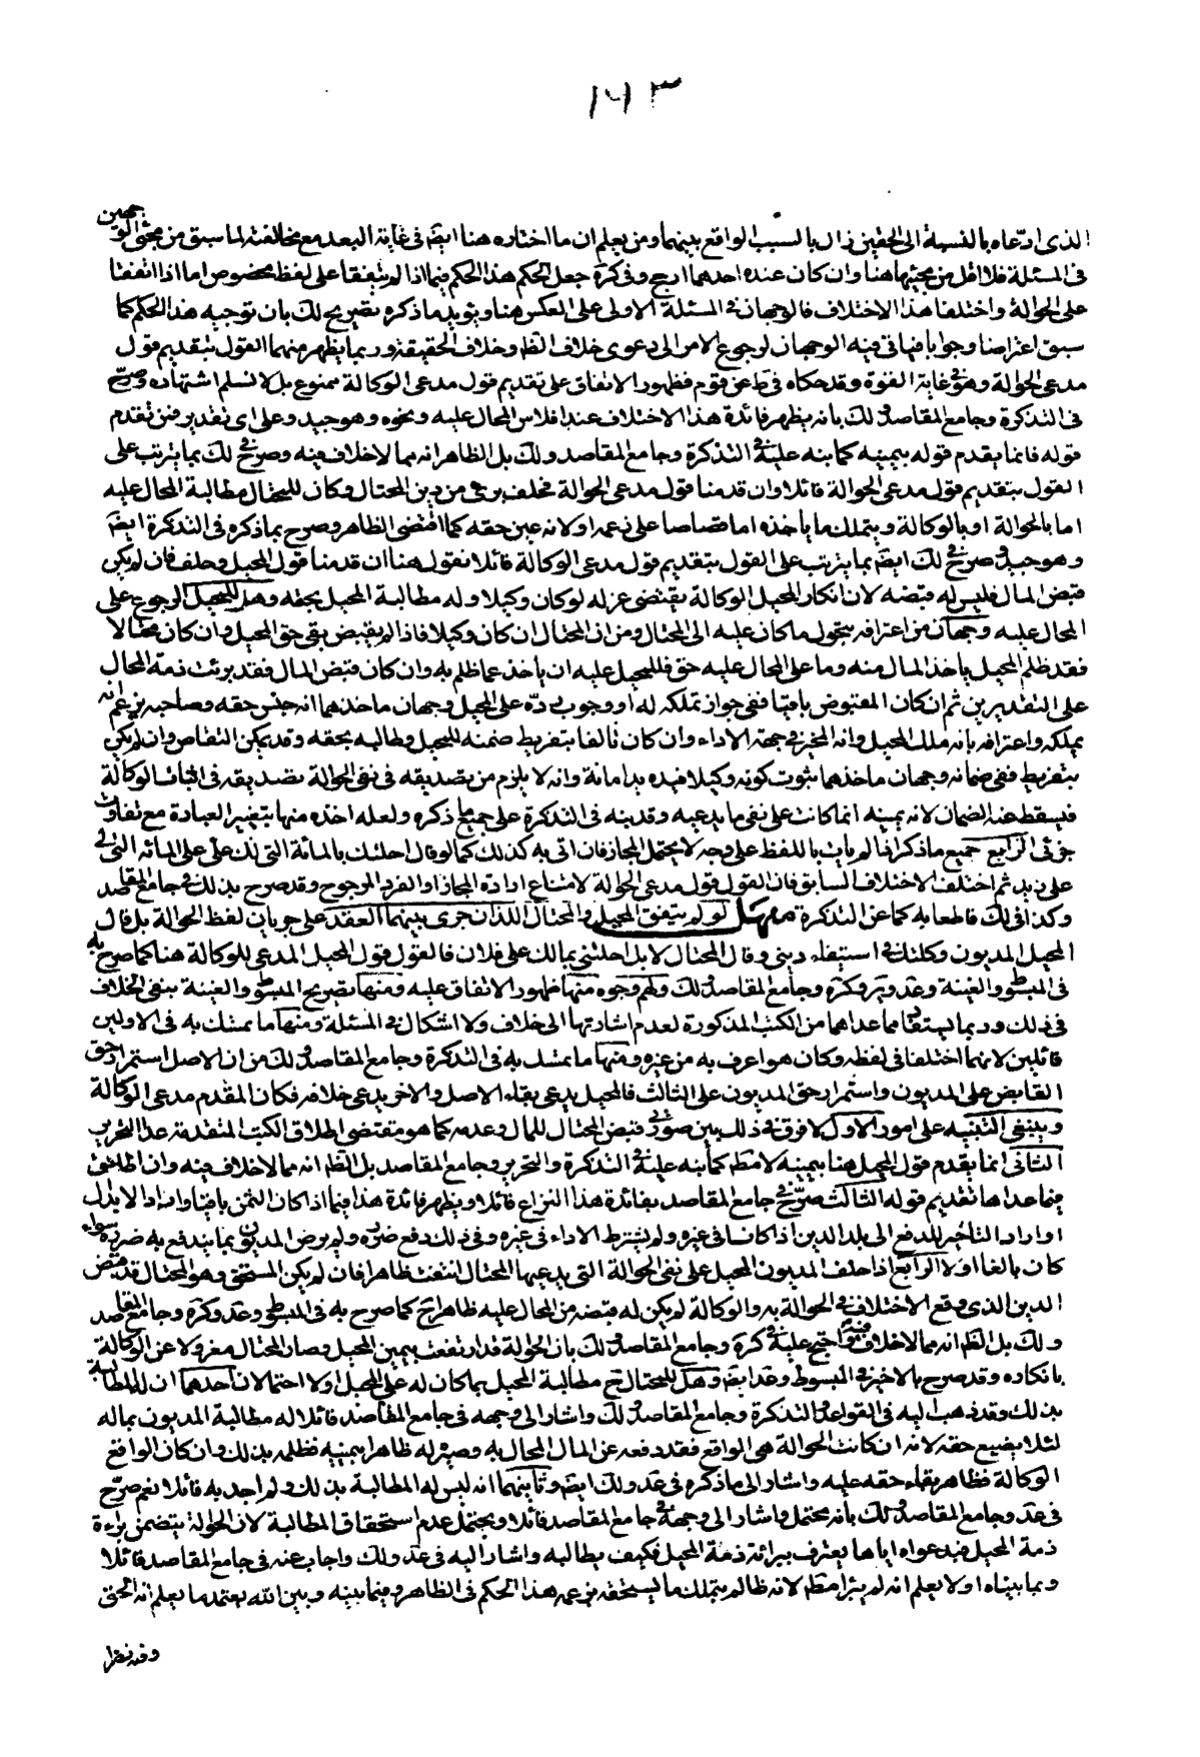 ١٦٣
الذى ادعاه بالنسبة الى الحقين زال بالسبب الواقع بينهما ومن يعلم ان ما اختاره هنا ايضَ فى غاية البعد مع مخالفته لما سبق من مجئ الوجهين
فى المسئلة فلا اقل من مجيئها هنا وان كان عنده احدهما ارجح وفى كرة جعل الحكم هذا الحكم فيما اذا لم يتفقا على لفظ مخصوص اما اذا اتفقتا
على الحوالة واختلفا هذا الاختلاف فالوجهان فى المسئلة الاولى على العكس هنا ويؤيد ما ذكره تصريح لك بان توجيه هذا الحكم كما
سبق اعتراضا وجوابا فياتى فيه الوجهان لرجوع الامر الى دعوى خلاف الظَ وخلاف الحقيقة وربما يظهر منهما القول بتقديم قول
مدعى الحوالة وهو فى غاية القوة وقد حكاه فى ط عن قوم فظهور الاتفاق على تقديم قول مدعى الوكالة ممنوع بل لا نسلم اشتهاده وصرّح
فى التذكرة وجامع المقاصد ولك بانه يظهر فائدة هذا الاختلاف عند افلاس المحال عليه ونحوه وهو جيد وعلى اى تقدير فمن تقدم
قوله فانما يقدم قوله بيمينه كما نبه عليه فى التذكرة وجامع المقاصد ولك بل الظاهر انه مما لا خلاف فيه وصرح فى لك بما يترتب على
القول بتقديم قول مدعى الحوالة قائلا وان قدمنا قول مدعى الحوالة فحلف برئ من دين المحتال وكان للمحتال مطالبة المحال عليه
اما بالحوالة او بالوكالة ويتملك ما ياخذه اما قصاصا على زعمه او لانه عين حقه كما اقتضى الظاهر وصرح بما ذكره فى التذكرة ايضَ
وهو جيد وصرح فى لك ايضَ بما يترتب على القول بتقديم قول مدعى الوكالة قائلا نقول هنا ان قدمنا قول المحيل وحلف فان لم يكن
قبض المال فليس له قبضه لان انكار المحيل الوكالة يقتضى عزله لو كان وكيلا وله مطالبة المحيل بحقه وهل للمحيل الرجوع على
المحال عليه وجهان من اعترافه بتحول ما كان عليه الى المحتال ومن ان المحتال ان كان وكيلا فاذا لم يقبض بقى حق المحيل وان كان محتالا
فقد ظلم المحيل باخذ المال منه وما على المحال عليه حق فللمحيل عليه ان ياخذ عما ظلم به وان كان قبض المال فقد برئت ذمة المحال
على التقديرين ثم ان كان المقبوض باقيا ففى جواز تملكه له او وجوب ردّه على المحيل وجهان ماخذهما انه جنس حقه وصاحبه يزعم انه
يملكه واعترافه بانه ملك المحيل وانه المخير فى جهة الاداء وان كان تالفا بتفريط ضمنه للمحيل وطالبه بحقه وقد يمكن التقاص وان لم يكن
بتفريط ففى ضمانه وجهان ماخذهما ثبوت كونه وكيلا فيده يد امانة وانه لا يلزم من تصديقه فى نفى الحوالة تصديقه فى اثبات الوكالة
فيسقط عنه الضمان لانه يمينه انما كانت على نفى ما يدعيه وقد نبه فى التذكرة على جميع ما ذكره ولعله اخذه منها بتغيير العبادة مع تفاوت
جزئى الرابع جميع ما ذكر انما لم يات باللفظ على وجه لا يحتمل المجاز فان اتى به كذلك كما لو قال احلتك بالمائة التى لك على على المائه التى لى
على زيد ثم اختلفت الاختلاف السابق فان القول قول مدعى الحوالة لامتناع ارادة المجاز او الفرد المرجوح وقد صرح بذلك فى جامع المقاصد
وكذا فى لك قاطعا به كما عن التذكرة منهل لو لم يتفق المحيل والمحتال اللذان جرى بينهما العقد على جريان لفظ الحوالة بل قال
المحيل المديون وكلتك فى استيفاء دينى وقال المحتال لا بل احلتنى بمالك على فلان فالقول قول المحيل المدعى للوكالة هنا كما صرح به
فى المبسوط والغنية وعد وير وكرة وجامع المقاصد ولك ولهم وجوه منها ظهور الاتفاق عليه ومنها تصريح المبسوط والغنية بنفى الخلاف
فى ذلك وربما يستفاد مما عداهما من الكتب المذكورة لعدم اشارتها الى خلاف ولا اشكال فى المسئلة ومنها ما تمسك به فى الاولين
قائلين لانهما اختلفا فى لفظه وكان هو اعرف به من غيره ومنها ما تمسك به فى التذكرة وجامع المقاصد ولك من ان الاصل استمرار حق
القابض على المديون واستمرار حق المديون على الثالث فالمحيل يدعى بقاء الاصل والاخر يدعى خلافه فكان المقدم مدعى الوكالة
وينبغى التنبيه على امور الاول لا فرق فى ذلك بين صورتى قبض المحتال للمال وعدمه كما هو مقتضى اطلاق الكتب المتقدمة عدا التحرير
الثانى انما يقدم قول المحيل هنا بيمينه لا مطَ كما نبه عليه فى التذكرة والتحرير وجامع المقاصد بل الظَ انه مما لا خلاف فيه وان اطلق
فيما عداها تقديم قوله الثالث صرّح فى جامع المقاصد بفائدة هذا النزاع قائلا ويظهر فائدة هذا فيما اذا كان الثمن باقيا واراد الابدال
او اراد التاخير للدفع الى بلد الدين اذا كان فى غيره ولم يشترط الاداء فى غيره وفى ذلك دفع ضرر ولم يرض المديون بما يندفع به ضرره سواء
كان بالغا اولا الرابع اذا حلف المديون المحيل على نفى الحوالة التى يدعيها المحتال انتفت ظاهرا فان لم يكن المستحق وهو المحتال قد قبض
الدين الذى وقع الاختلاف فى الحوالة به والوكالة لم يكن له قبضه من المحال عليه ظاهرا حَ كما صرح به فى المبسوط وعد وكرة وجامع المقاصد
ولك بل الظَ انه مما لا خلاف فيه واحتج عليه فى كرة وجامع المقاصد ولك بان الحوالة قد ارتفعت بيمين المحيل وصار المحتال معزولا عن الوكالة
بانكاره وقد صرح بالاخير فى المبسوط وعد ايضَ وهل للمحتال حَ مطالبة المحيل بما كان له على المحيل اولا احتمالان احدهما ان له المطالبة
بذلك وقد ذهب اليه فى القواعد والتذكرة وجامع المقاصد ولك واشار الى وجهه فى جامع المقاصد قائلا له مطالبة المديون بماله
لئلا يضيع حقه لانه ان كانت الحوالة هى الواقع فقد دفعه عن المال المحال به وصيره له ظاهرا بيمينه فظلمه بذلك وان كان الواقع
الوكالة فظاهر بقاء حقه عليه واشار الى ما ذكره فى عد ولك ايضَ وثانيهما انه ليس له المطالبة بذلك ولم اجد به قائلا نعم صرّح
فى عد وجامع المقاصد ولك بانه محتمل واشار الى وجهه فى جامع المقاصد قائلا ويحتمل عدم استحقاق المطالبة لان الحوالة يتضمن براءة
ذمة المحيل فبدعواه اياها يعترف ببرائة ذمة المحيل فكيف يطالبه واشار اليه فى عد ولك واجاب عنه فى جامع المقاصد قائلا
وبما بيناه اولا يعلم انه لم يبرا مطَ لانه ظالم بتملك ما يستحقه بزعمه هذا الحكم فى الظاهر وفيما بينه وبين الله يعتمد ما يعلم انه الحق
وفيه نظر